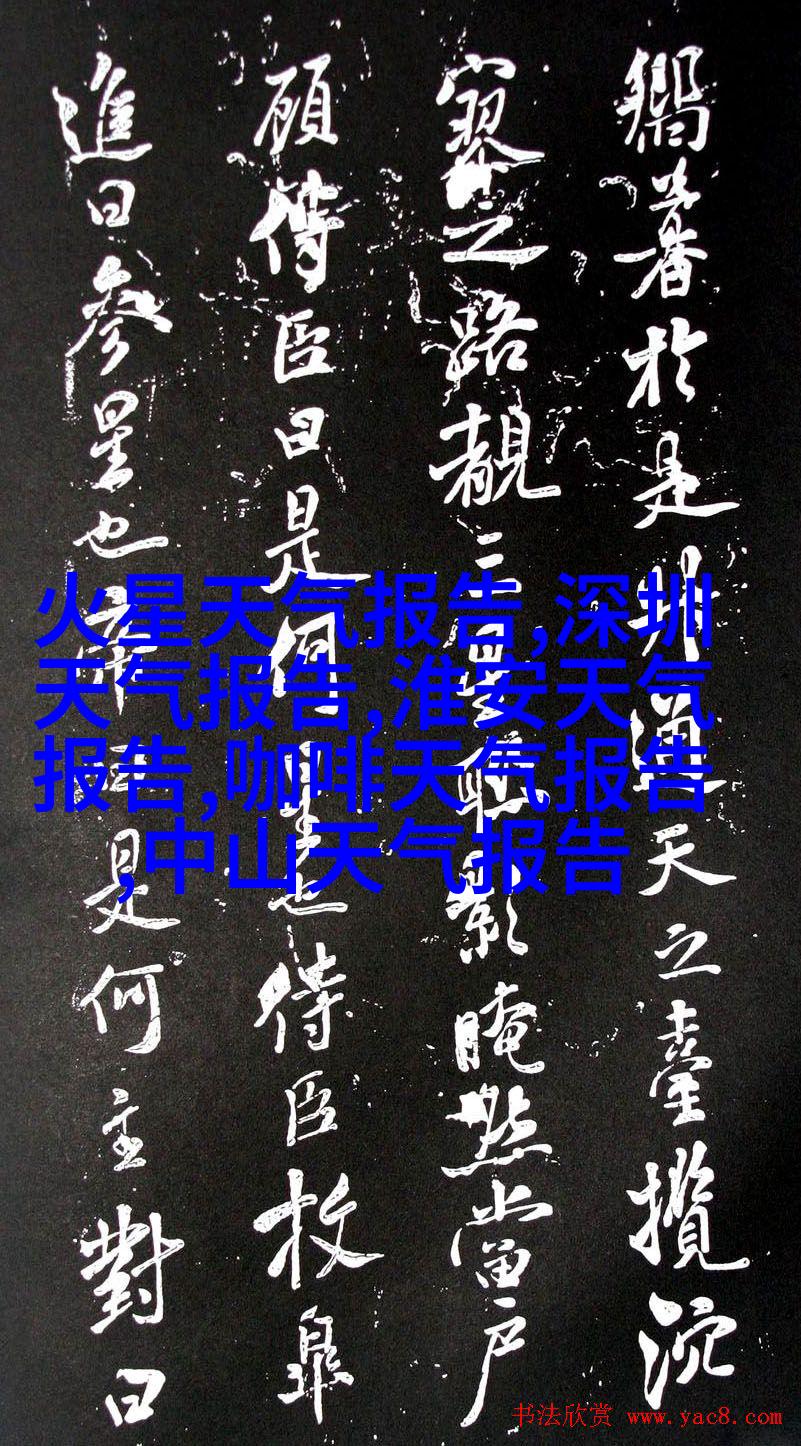 於是升通天之臺攬沉
寥之路覩三星聯影晻然當戶
顧侍臣曰是何星也侍臣枚皋
進曰參星也帝曰是何主對曰
火星天气报告,深圳
天气报告,淮安天气
报告,咖啡天气报告
,中山天气报告
书法欣赏 www.yac8.com